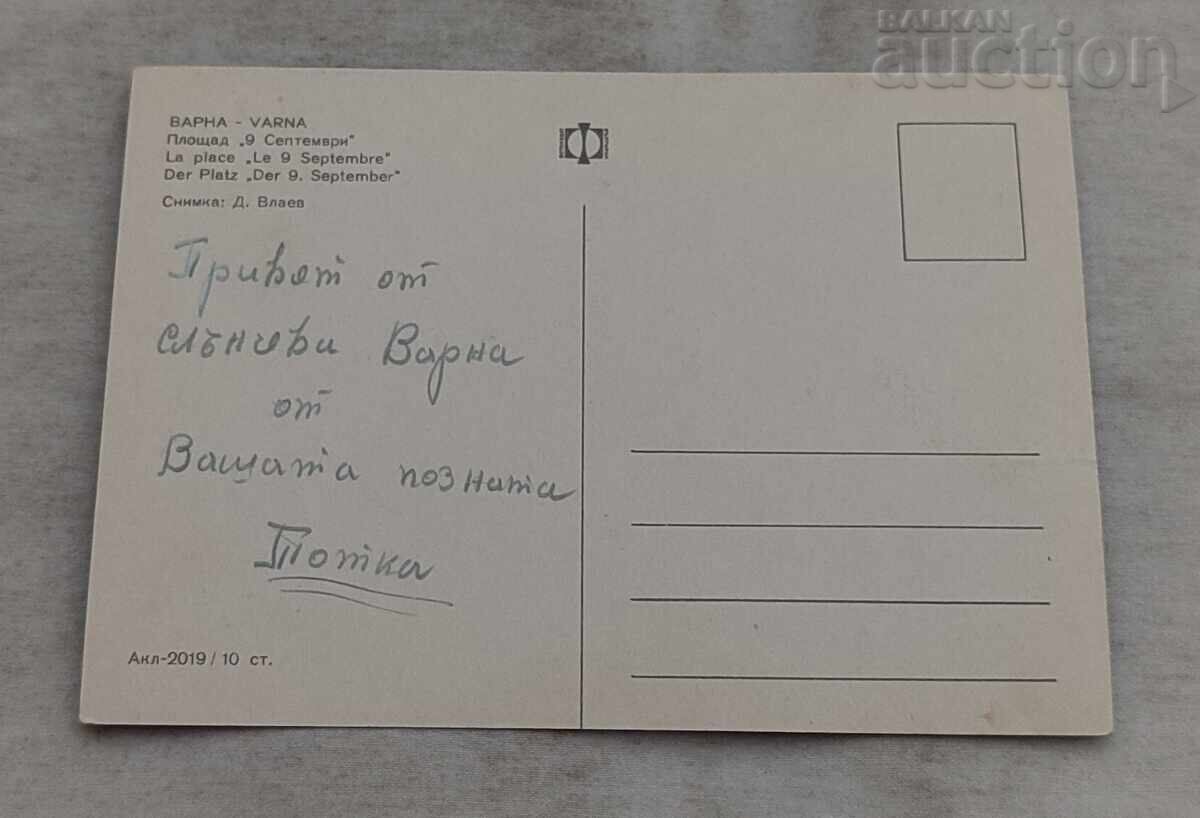 BALKAN
auction
ВАРНА - VARNA
Площад „9 Септември"
La place „Le 9 Septembre"
Der Platz „Der 9. September"
Снимка: Д. Влаев
Привет от
слънчева Варна
от
Вашата позната
Тотка
Акл-2019 / 10 ст.